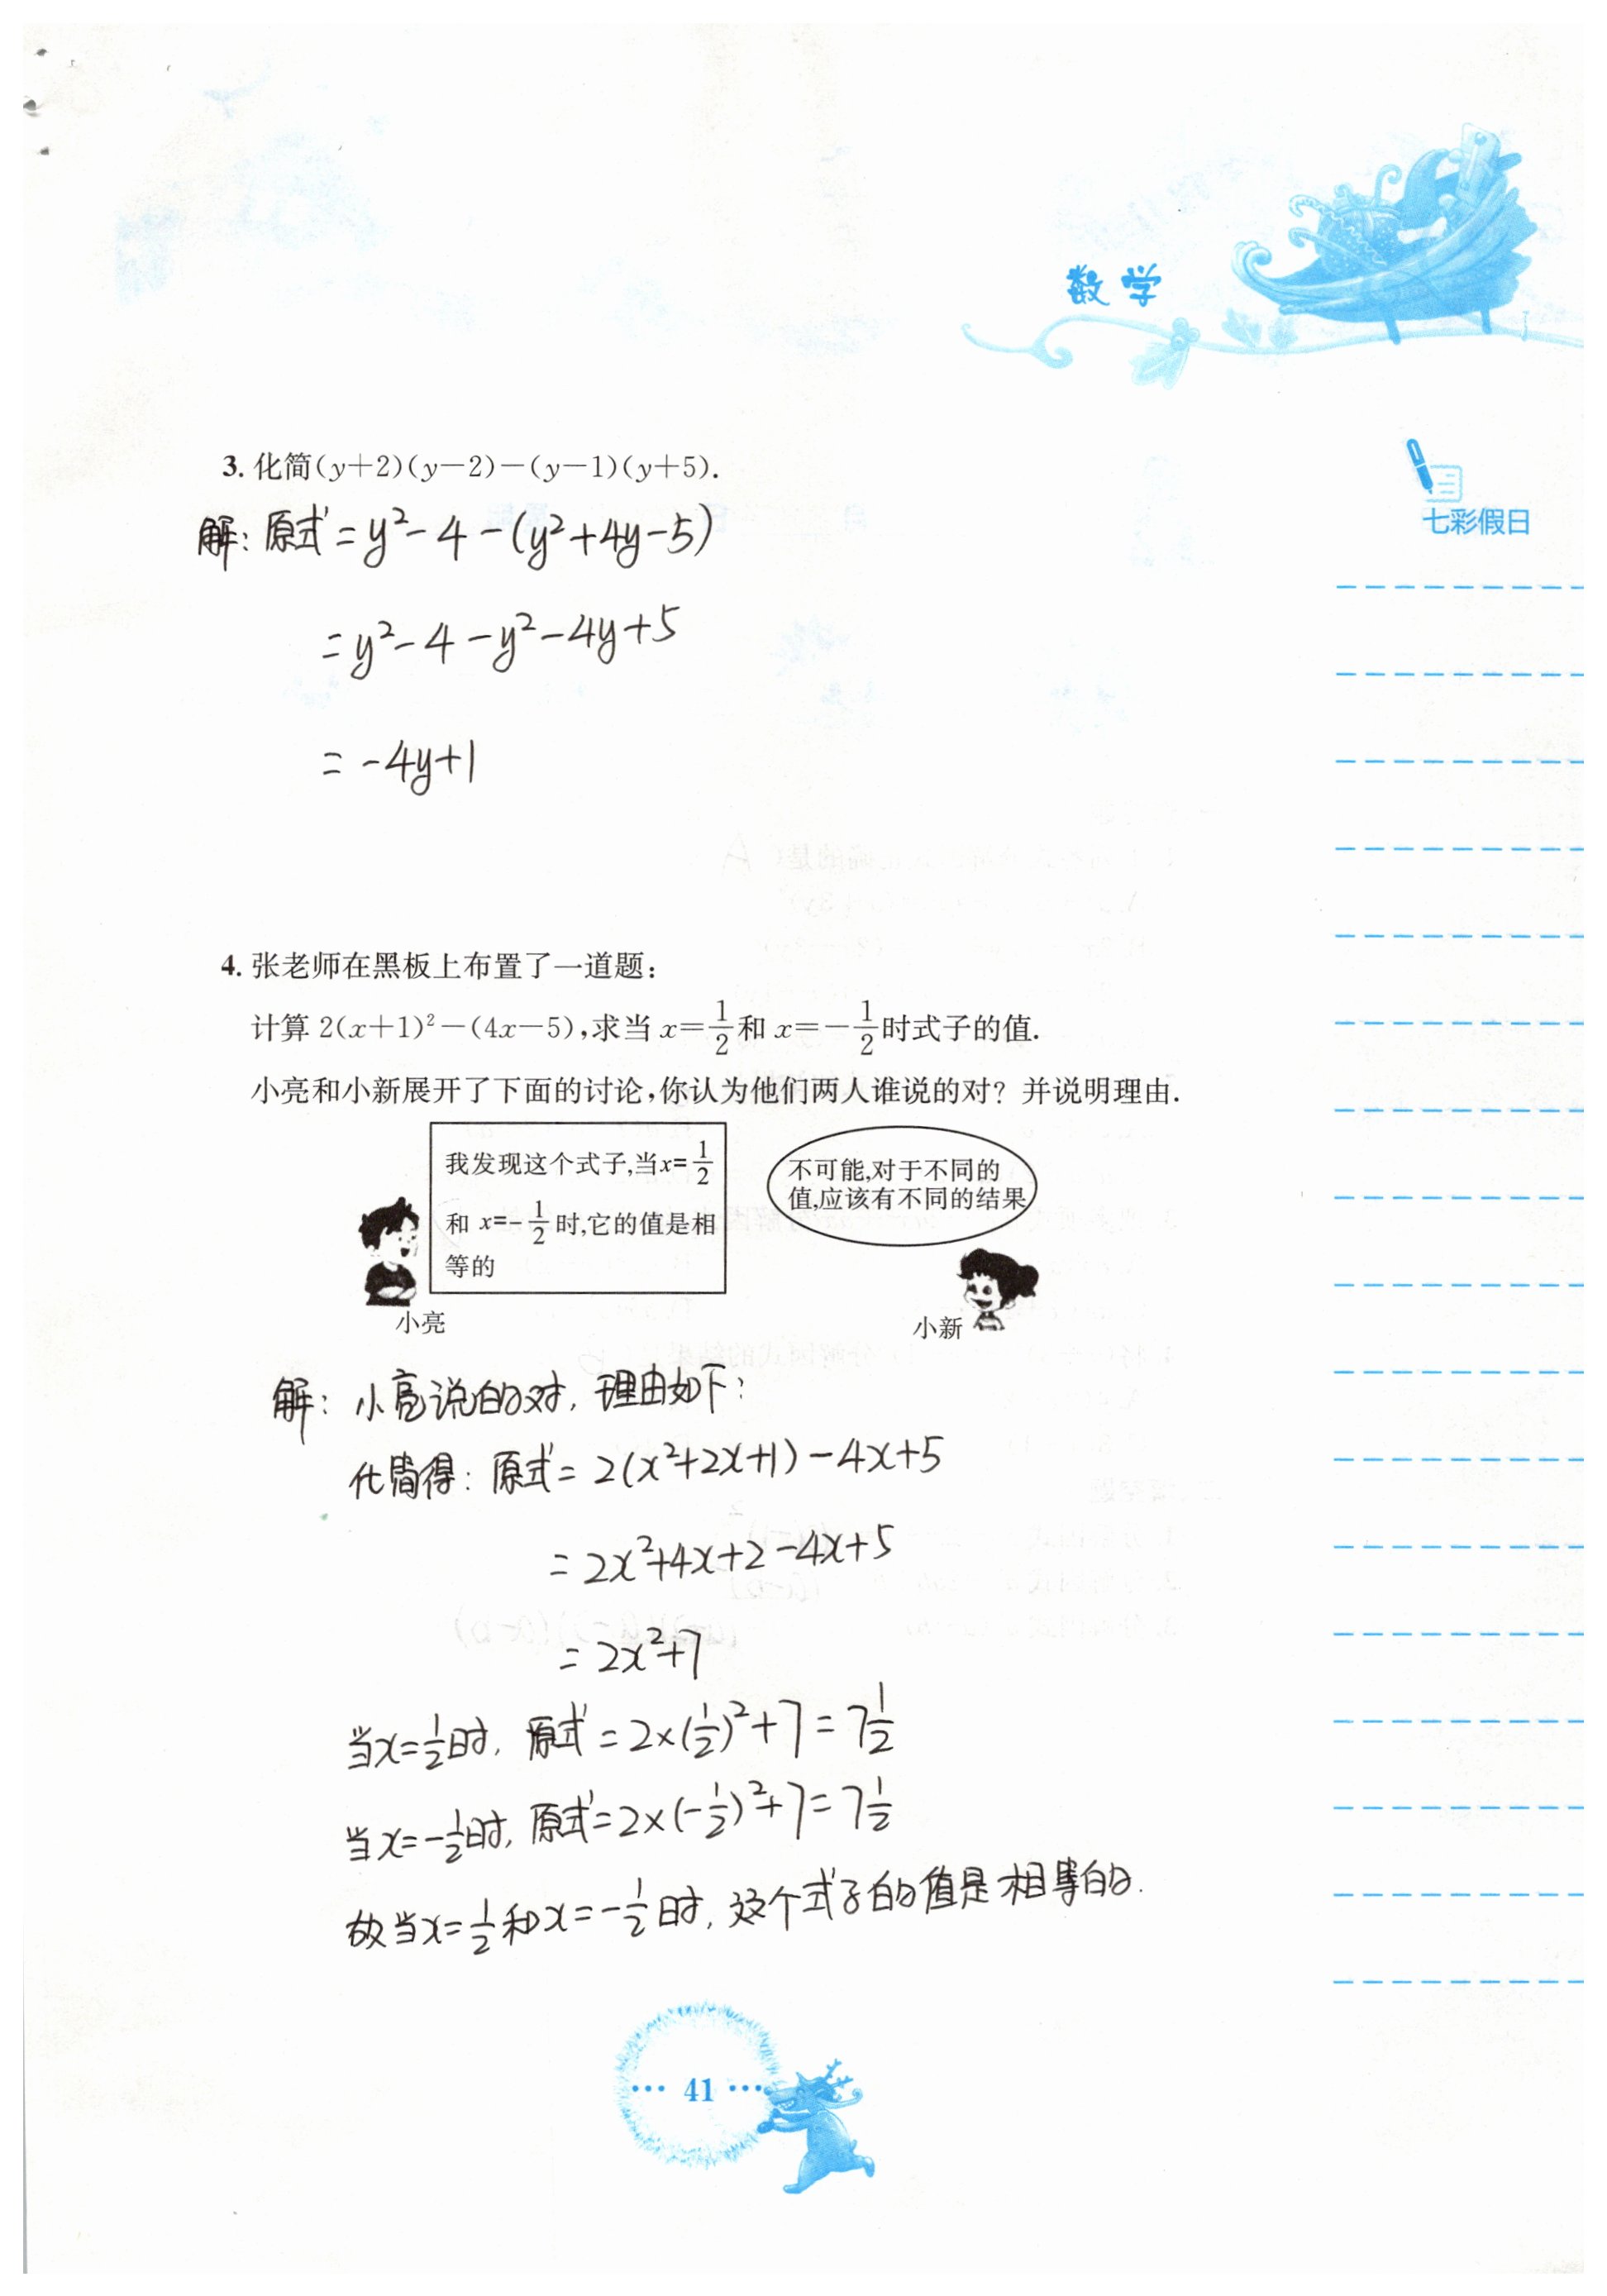 数学
七彩假日
3. 化简(y+2)(y−2)−(y−1)(y+5).
解: 原式 = y²-4-(y²+4y-5)
= y²-4-y²-4y+5
= -4y+1
4. 张老师在黑板上布置了一道题:
计算 2(x+1)²−(4x−5),求当 x=1/2 和 x=−1/2 时式子的值.
小亮和小新展开了下面的讨论,你认为他们两人谁说的对? 并说明理由.
我发现这个式子,当x=1/2
和 x=-1/2 时,它的值是相
等的
小亮
不可能,对于不同的
值,应该有不同的结果
小新
解: 小亮说的对, 理由如下:
化简得: 原式 = 2(x²+2x+1)-4x+5
= 2x²+4x+2-4x+5
= 2x²+7
当x=1/2时, 原式 = 2×(1/2)²+7 = 7 1/2
当x=-1/2时, 原式 = 2×(-1/2)²+7 = 7 1/2
故当x=1/2和x=-1/2时, 这个式子的值是相等的.
··· 41 ···